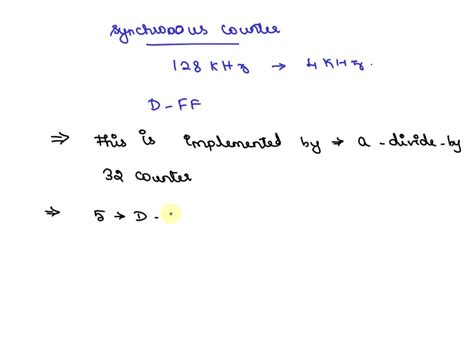 Synchronous counter
128 KHz → 4 KHz.
D-FF
⇒ This is implemented by → a-divide-by
32 counter
⇒ 5 → D -